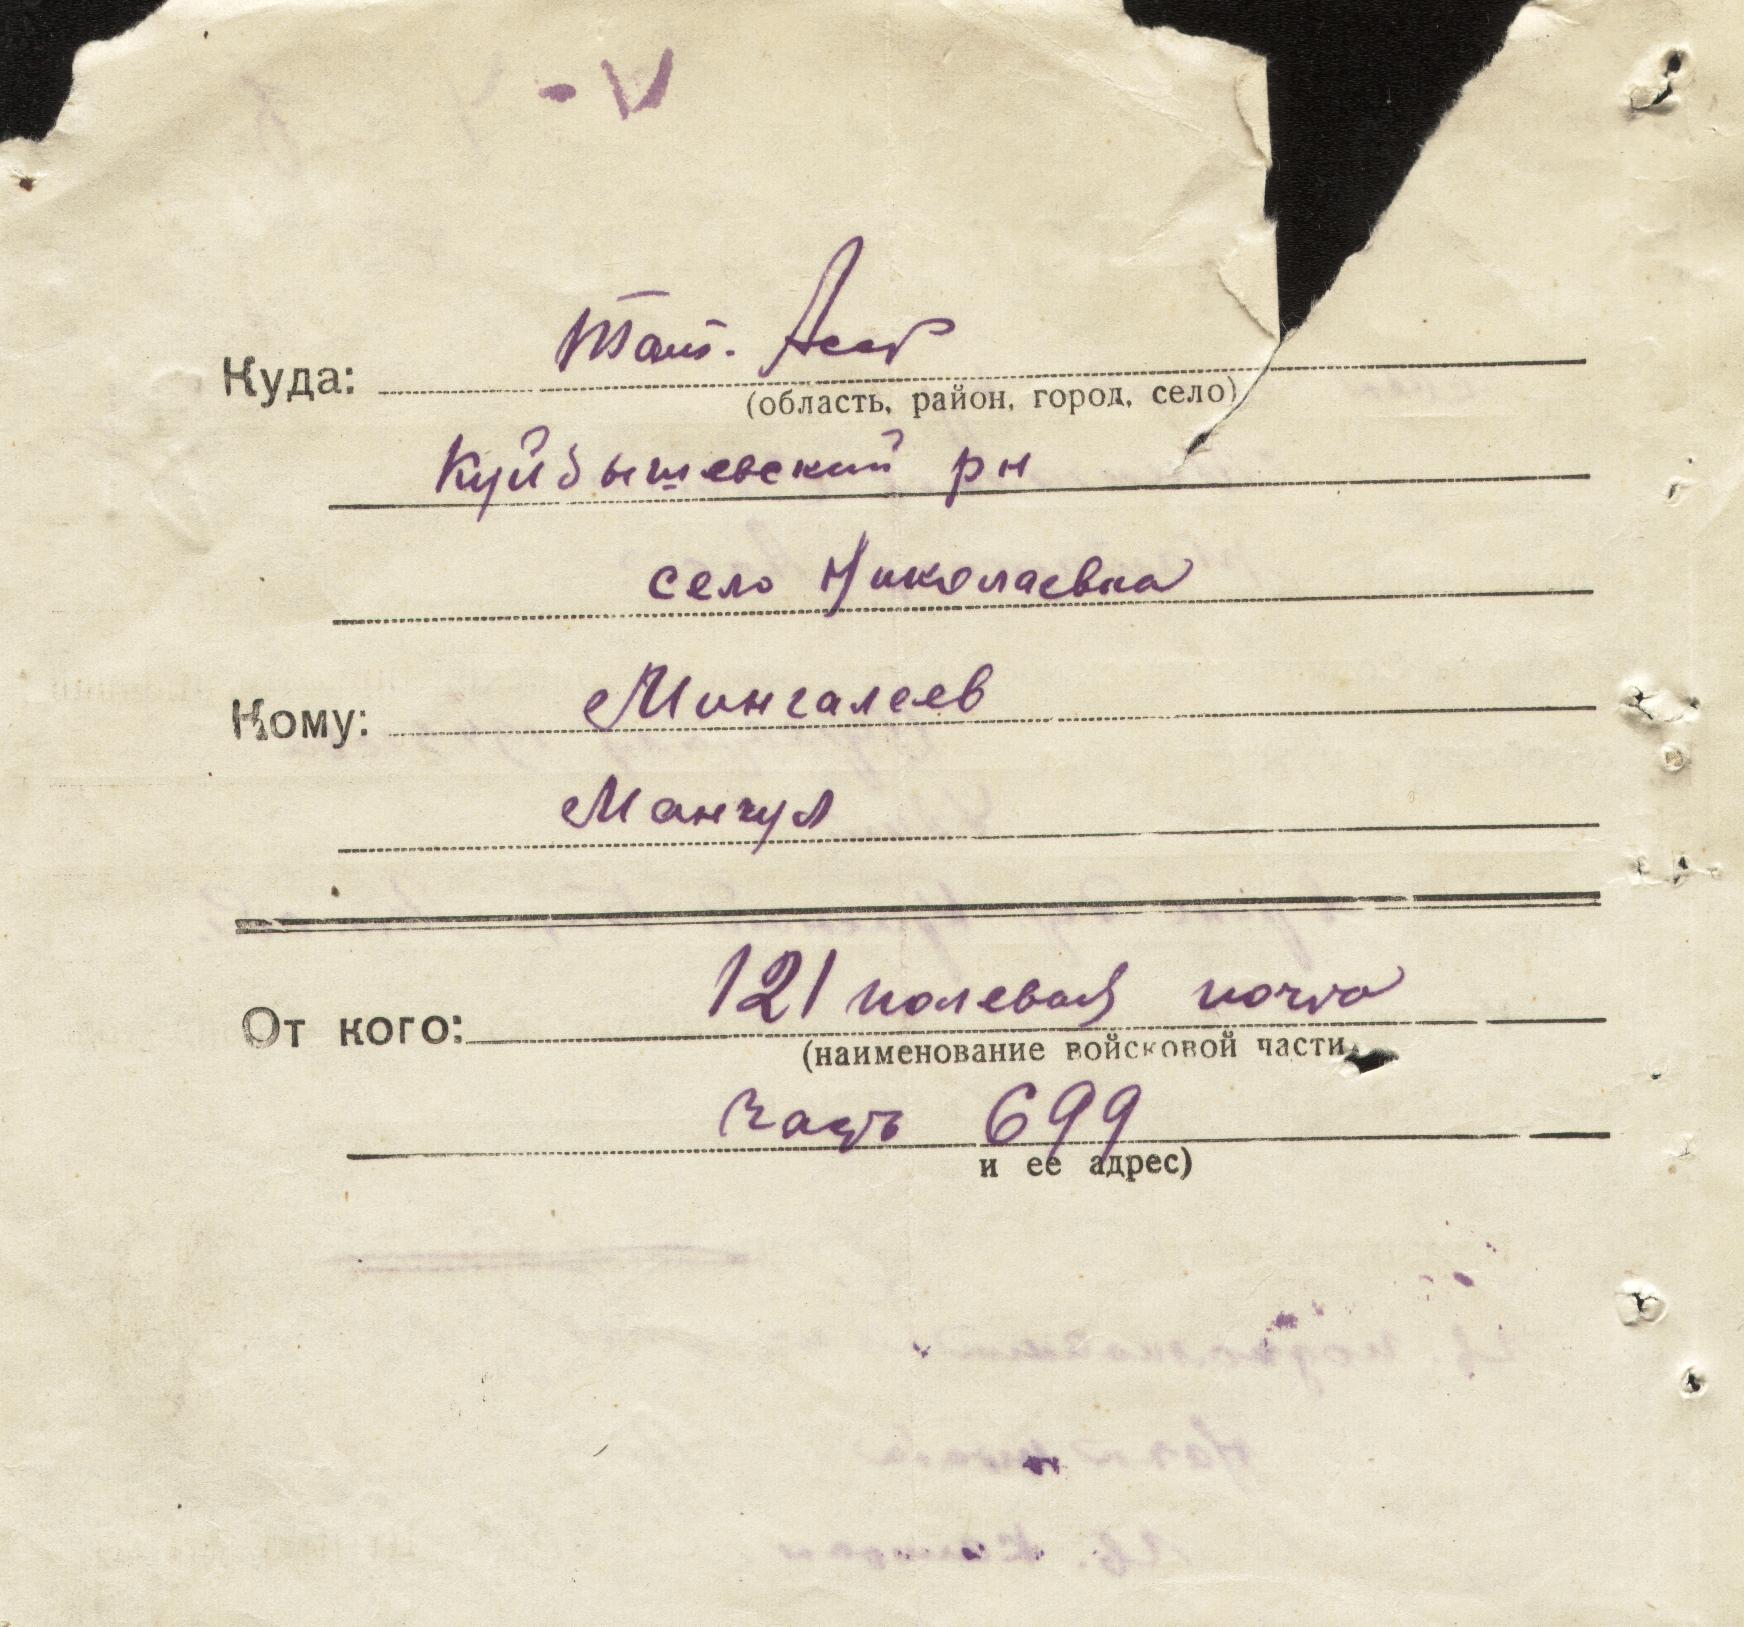 Куда: Тат. Асср
(область, район, город, село)
Куйбышевский рн
село Николаевка
Кому: Мингалеев
Мангул
От кого: 121 полевая почта
(наименование войсковой части
часть 699
и ее адрес)